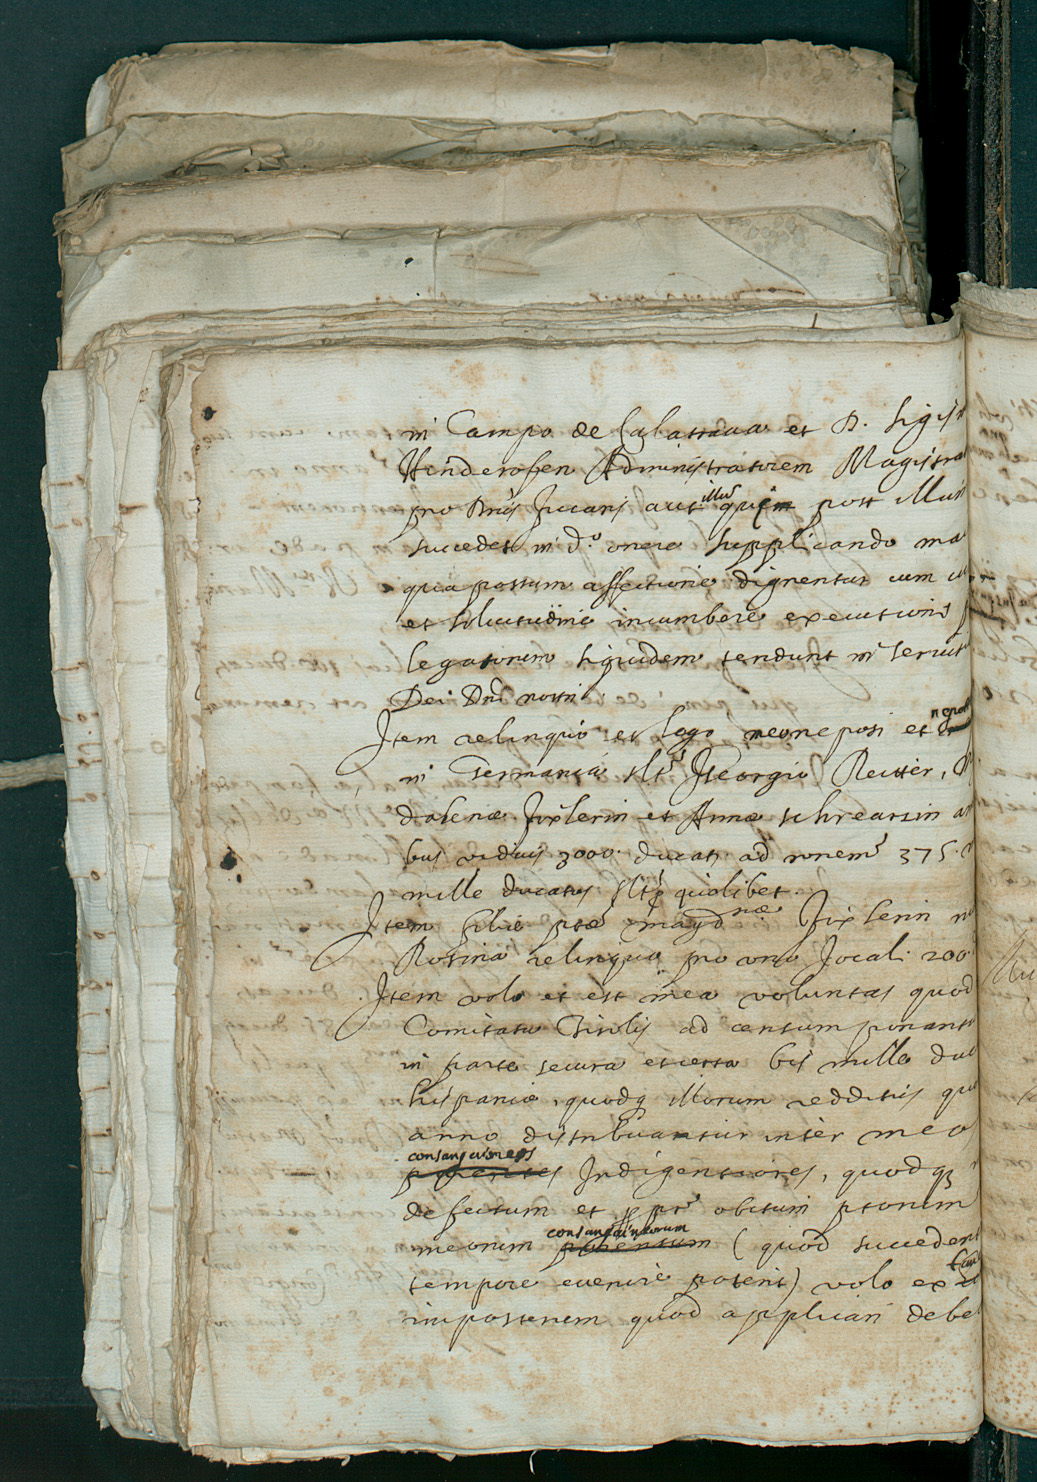 in Campo de Calattraua et D. Sigis
Hinderofen Administratorem Magistra
pro Dnis fucaris aut illū quem post illum
succedet in d.º onere supplicando
qua possum affectione dignentur cum
et solicitudine incumbere executioni
legatorum siquidem tendunt in seruit
Dei Dnī nostri
Item relinquo et lego meo neposi et nepot
in Germania slt Georgio Reitter,
dalenæ fixlerin et Annæ schrearsin
bus viduis 3000. ducat ad ronem 375.
mille ducatus slt quolibet.
Item filiæ ptæ magdnæ fixlerin
Rosinæ relinquo pro uno Jocali 200
Item volo et est mea voluntas quod
Comitatu Tirolis ad censum ponant
in parte secura et certa bis mille duc
hispaniæ, quodq illorum redditus qu
anno distribuantur inter meo
consanguineos
parentes Indigentiores, quodq
defectum et ppr obitum ptorum
consanguineorum
meorum parentum (quod succeden
tempore euenire poterit) volo ex
impostenem quod applicari debe